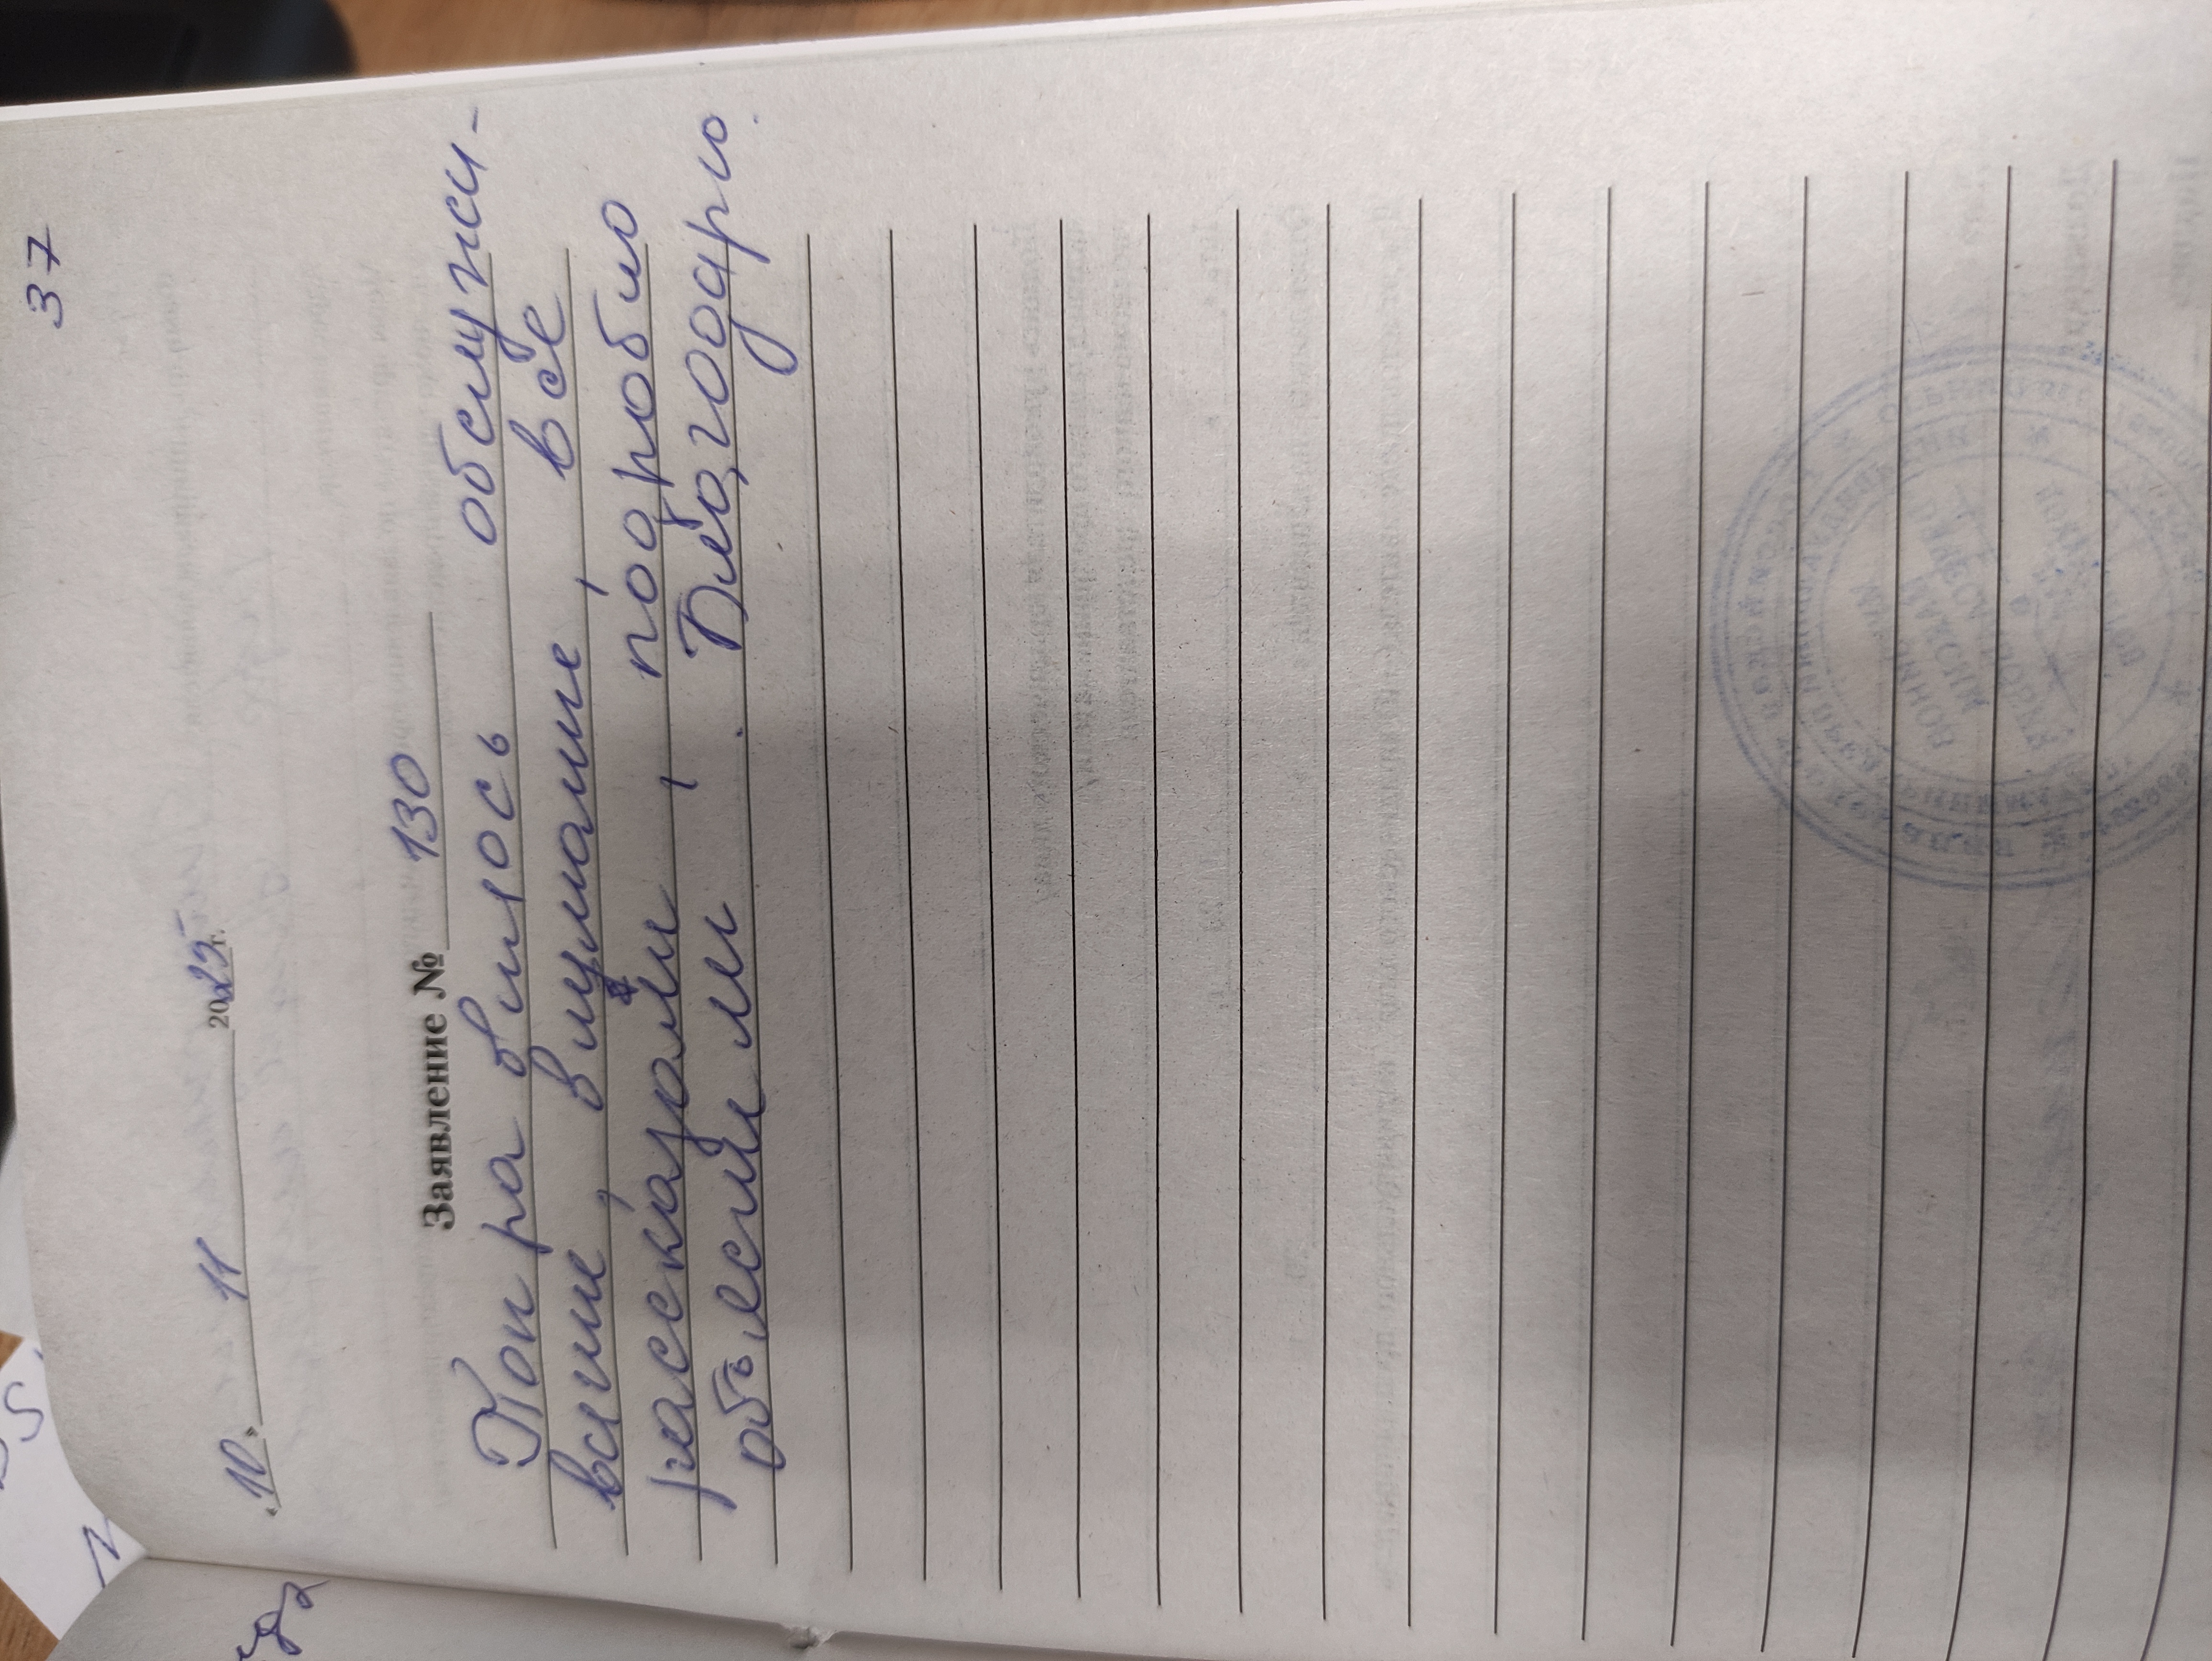 37
«10» 11 2025 г.
Заявление № 130
Понравилось обслужи-
вание, внимание, все
рассказали, подробно
объяснили. Благодарю.